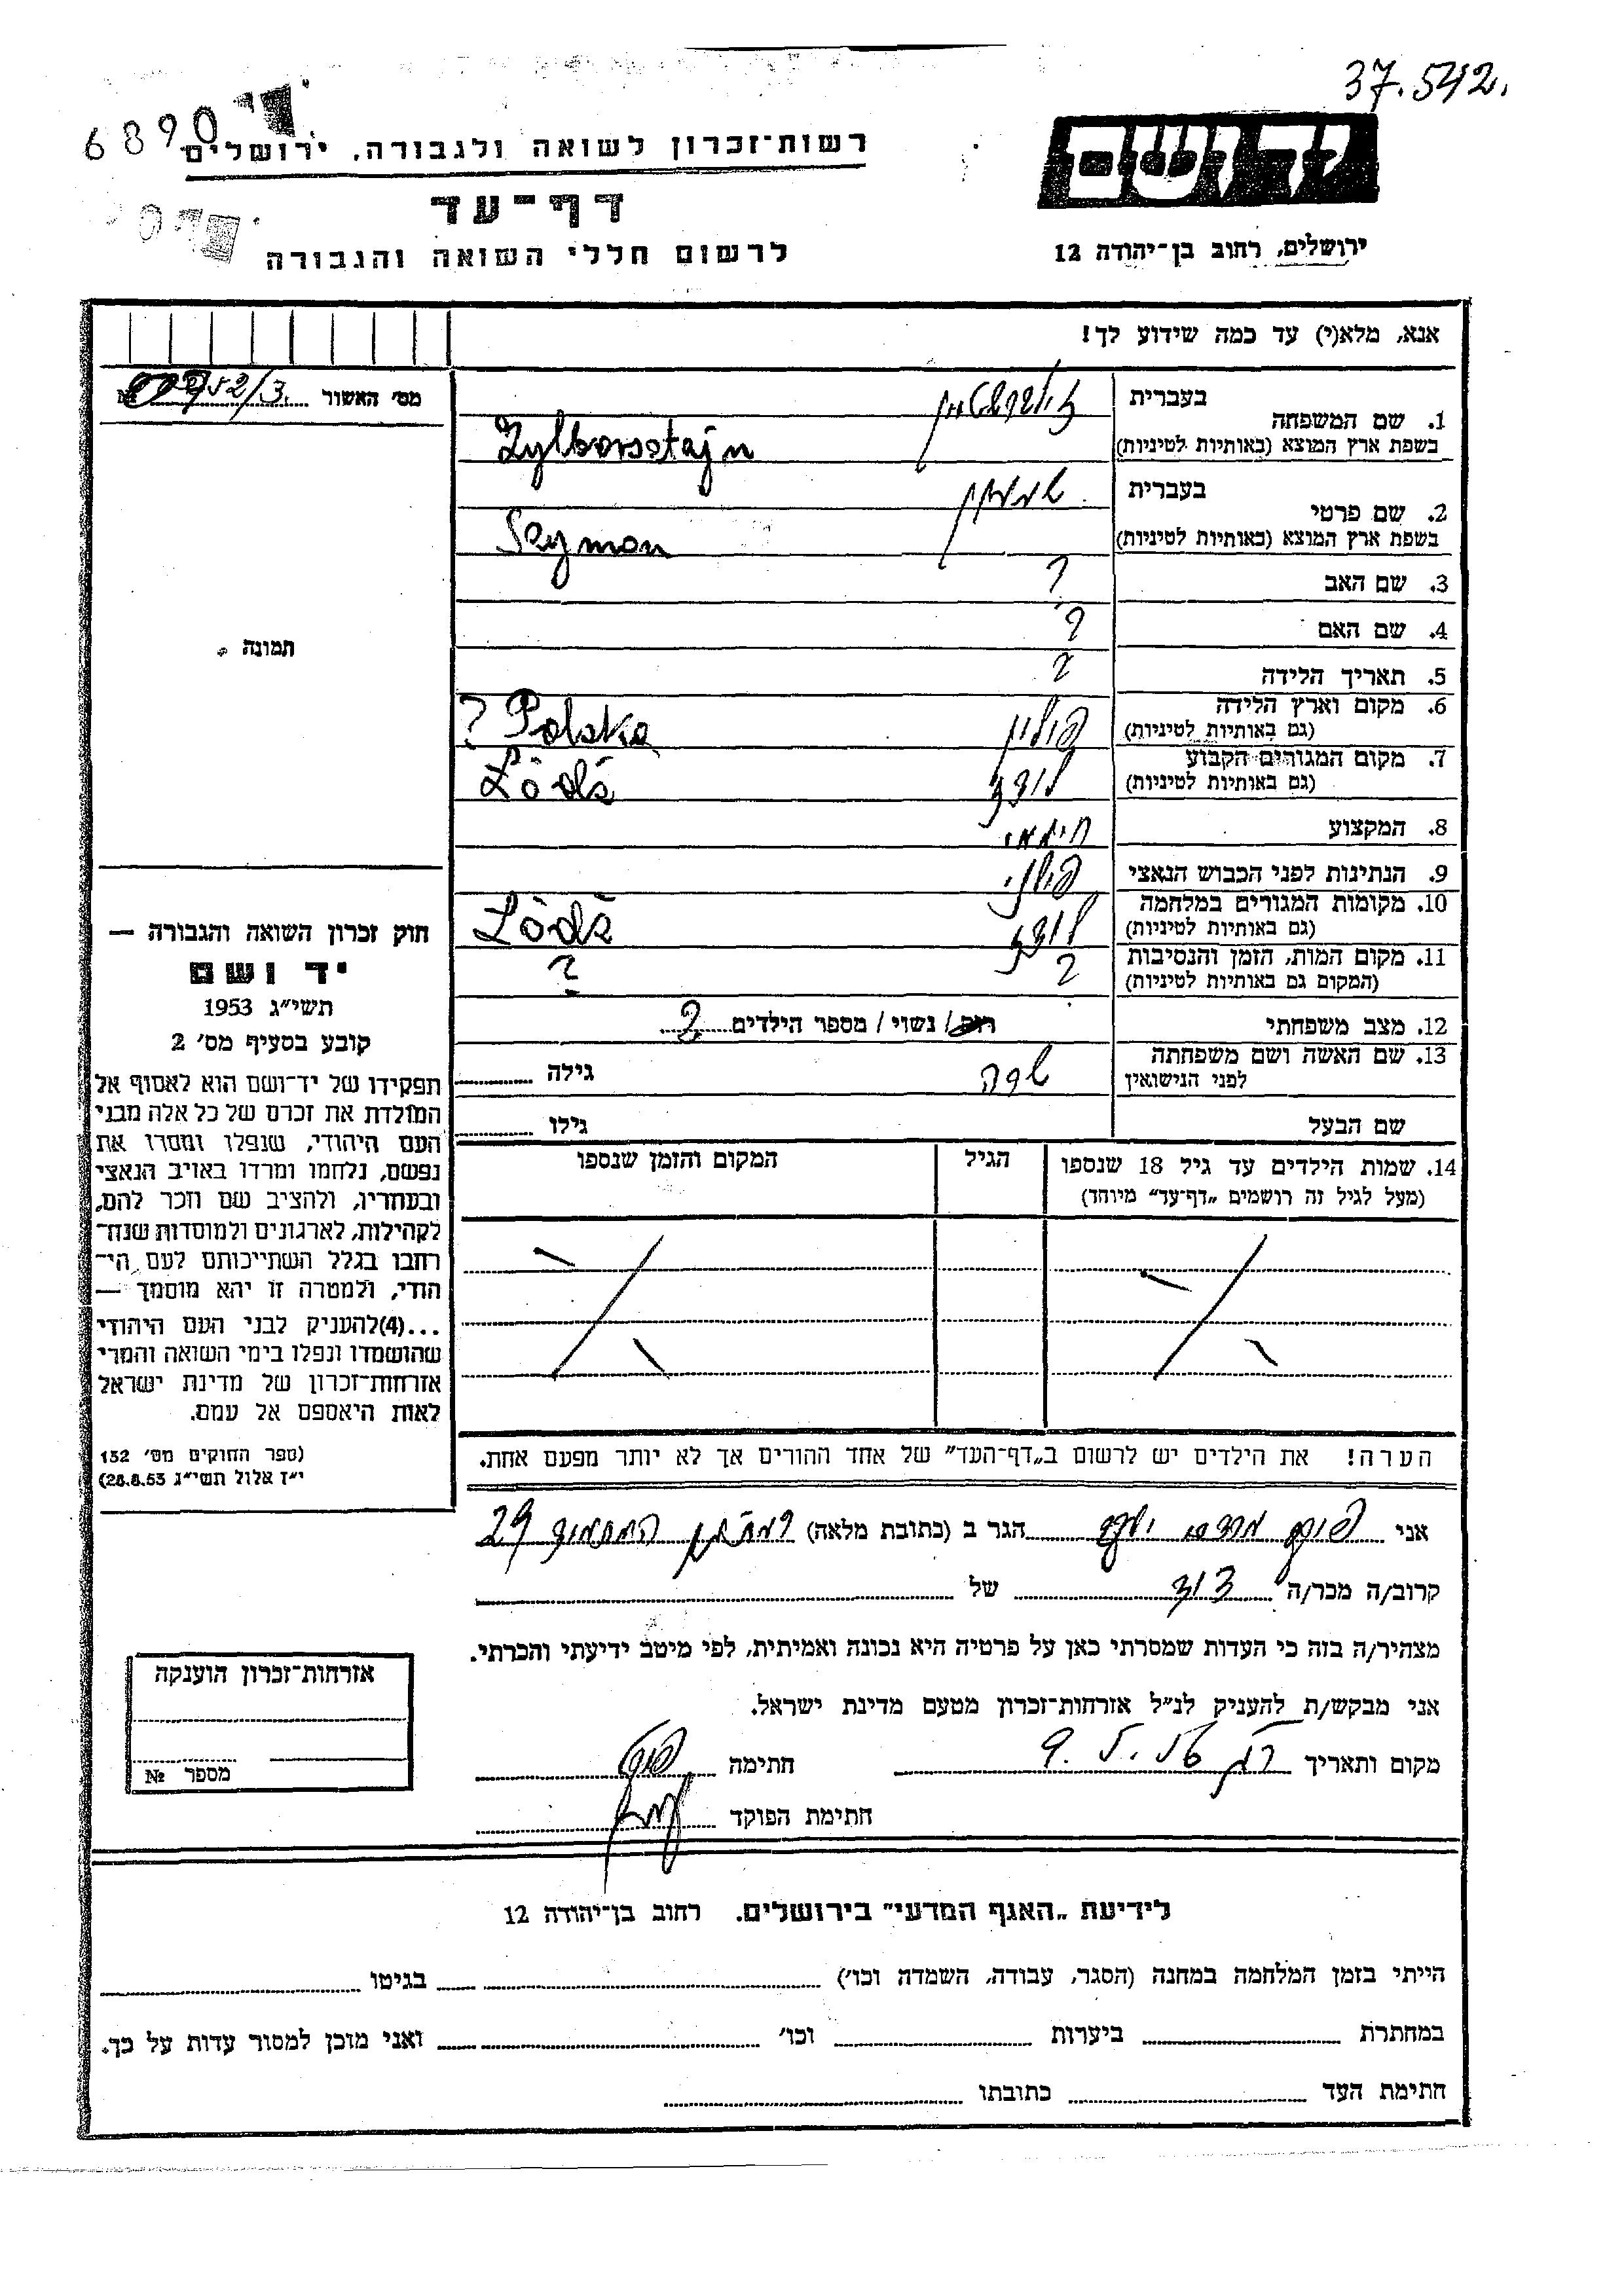 37.542.
6890
רשות־זכרון לשואה ולגבורה, ירושלים
יד ושם
דף־עד
ירושלים, רחוב בן־יהודה 12
לרשום חללי השואה והגבורה
אנא, מלא(י) עד כמה שידוע לך!
מס׳ האשור №
1. שם המשפחה
בעברית זילברשטיין
בשפת ארץ המוצא (באותיות לטיניות) Zylbersztajn
2. שם פרטי
בעברית
בשפת ארץ המוצא (באותיות לטיניות) Szymon
3. שם האב ?
4. שם האם ?
5. תאריך הלידה ?
6. מקום וארץ הלידה פולין ? Polska
(גם באותיות לטיניות)
7. מקום המגורים הקבוע לודז Łódź
(גם באותיות לטיניות)
8. המקצוע
9. הנתינות לפני הכבוש הנאצי פולני
10. מקומות המגורים במלחמה לודז Łódź
(גם באותיות לטיניות)
11. מקום המות, הזמן והנסיבות ? ?
(המקום גם באותיות לטיניות)
12. מצב משפחתי רווק / נשוי / מספר הילדים 2
13. שם האשה ושם משפחתה שרה גילה
לפני הנישואין
שם הבעל גילו
14. שמות הילדים עד גיל 18 שנספו הגיל המקום והזמן שנספו
(מעל לגיל זה רושמים „דף־עד” מיוחד)
הערה! את הילדים יש לרשום ב„דף־העד” של אחד ההורים אך לא יותר מפעם אחת.
תמונה
חוק זכרון השואה והגבורה —
יד ושם
תשי״ג 1953
קובע בסעיף מס׳ 2
תפקידו של יד־ושם הוא לאסוף אל
המולדת את זכרם של כל אלה מבני
העם היהודי, שנפלו ומסרו את
נפשם, נלחמו ומרדו באויב הנאצי
ובעוזריו, ולהציב שם וזכר להם,
לקהילות, לארגונים ולמוסדות שנח־
רבו בגלל השתייכותם לעם הי־
הודי, ולמטרה זו יהא מוסמך —
...(4)להעניק לבני העם היהודי
שהושמדו ונפלו בימי השואה והמרי
אזרחות־זכרון של מדינת ישראל
לאות היאספם אל עמם.
(ספר החוקים מס׳ 132
י״ז אלול תשי״ג 28.8.53)
אני הגר ב (כתובת מלאה) 29
קרוב/ה מכר/ה של
מצהיר/ה בזה כי העדות שמסרתי כאן על פרטיה היא נכונה ואמיתית, לפי מיטב ידיעתי והכרתי.
אני מבקש/ת להעניק לנ״ל אזרחות־זכרון מטעם מדינת ישראל.
מקום ותאריך חתימה
חתימת הפוקד
אזרחות־זכרון הוענקה
מספר №
לידיעת „האגף המדעי” בירושלים. רחוב בן־יהודה 12
הייתי בזמן המלחמה במחנה (הסגר, עבודה, השמדה וכו׳) בגיטו
במחתרת ביערות וכו׳ ואני מוכן למסור עדות על כך.
חתימת העד כתובתו